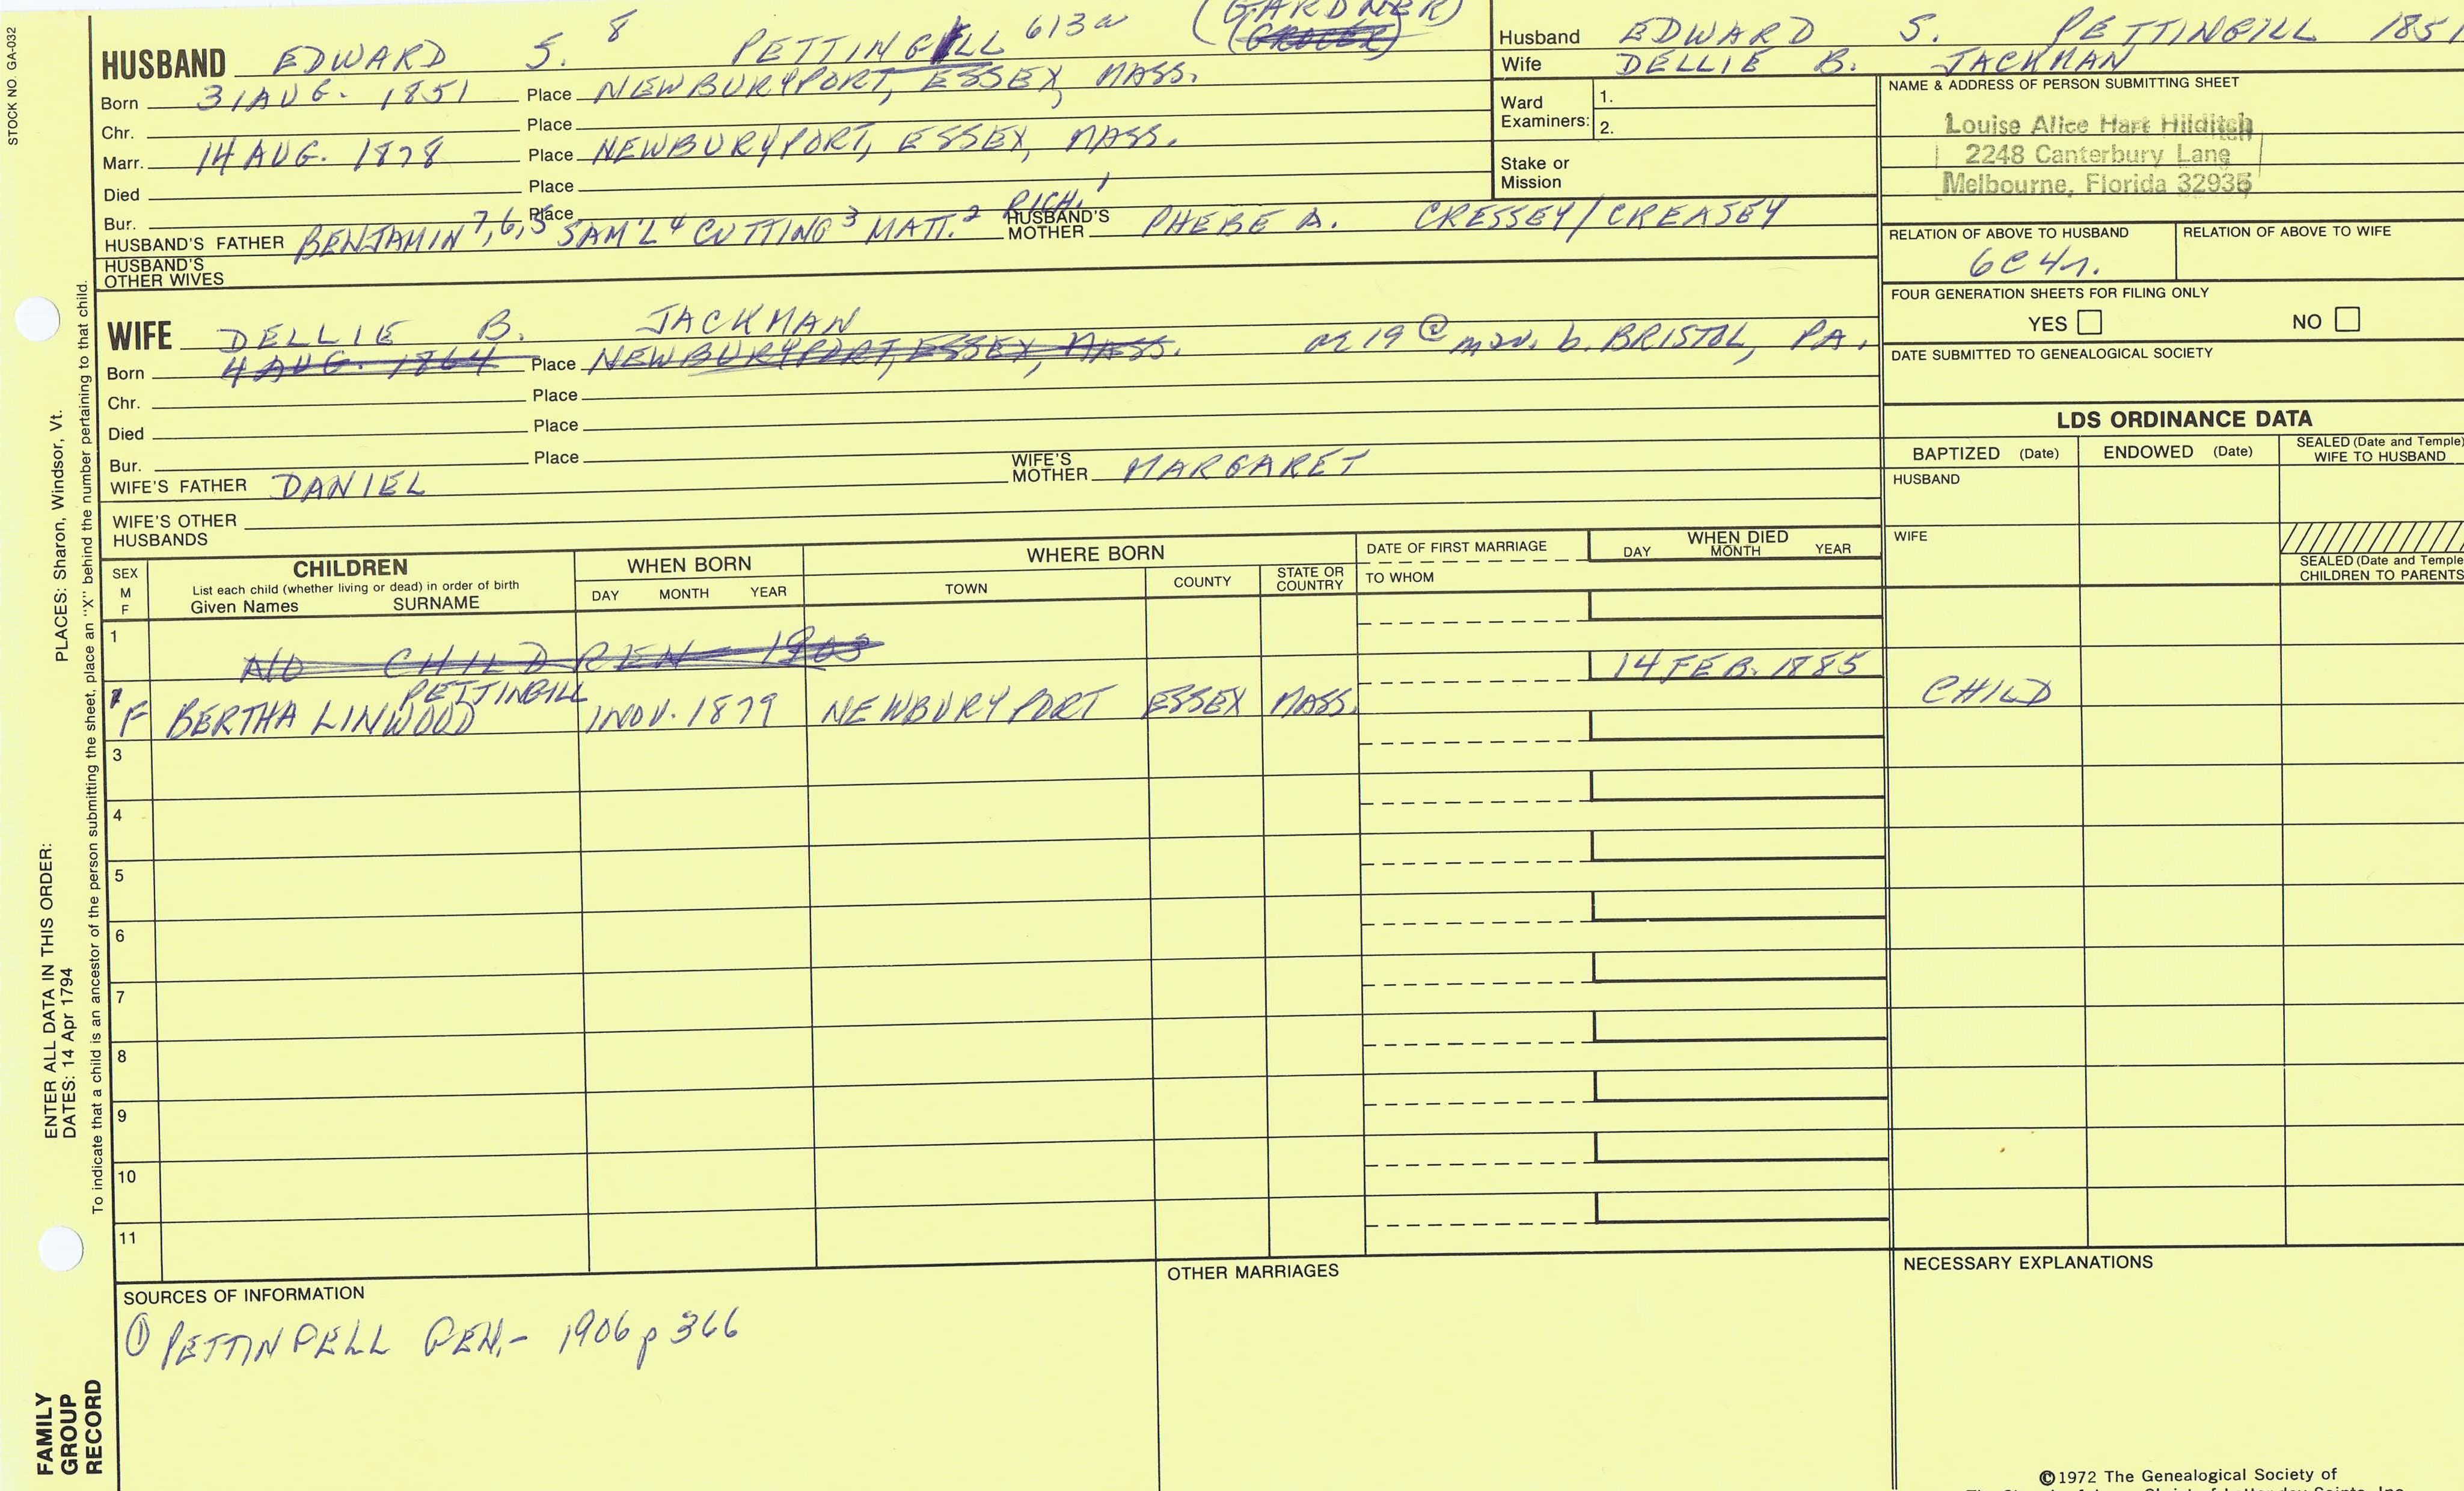 STOCK NO. GA-032
HUSBAND EDWARD S. 8 PETTINGILL 613a (GARDNER)
(GROCER)
Born 31 AUG. 1851 Place NEWBURYPORT, ESSEX, MASS.
Chr. Place
Marr. 14 AUG. 1878 Place NEWBURYPORT, ESSEX, MASS.
Died Place
Bur. Place
HUSBAND'S FATHER BENJAMIN 7,6,5 SAM'L 4 CUTTING 3 MATT. 2 RICH. 1 HUSBAND'S MOTHER PHEBE A. CRESSEY/CREASEY
HUSBAND'S OTHER WIVES
WIFE DELLIE B. JACKMAN
Born 4 AUG. 1864 Place NEWBURYPORT, ESSEX, MASS. ae 19 @ mar. b. BRISTOL, PA.
Chr. Place
Died Place
Bur. Place
WIFE'S FATHER DANIEL WIFE'S MOTHER MARGARET
WIFE'S OTHER HUSBANDS
Husband EDWARD S. PETTINGILL 1851
Wife DELLIE B. JACKMAN
Ward Examiners: 1.
2.
Stake or Mission
NAME & ADDRESS OF PERSON SUBMITTING SHEET
Louise Alice Hart Hilditch
2248 Canterbury Lane
Melbourne, Florida 32935
RELATION OF ABOVE TO HUSBAND RELATION OF ABOVE TO WIFE
6C4r.
FOUR GENERATION SHEETS FOR FILING ONLY
YES NO
DATE SUBMITTED TO GENEALOGICAL SOCIETY
LDS ORDINANCE DATA
BAPTIZED (Date) ENDOWED (Date) SEALED (Date and Temple) WIFE TO HUSBAND
HUSBAND
WIFE
SEALED (Date and Temple
CHILDREN TO PARENTS
SEX M F
CHILDREN
List each child (whether living or dead) in order of birth
Given Names SURNAME
WHEN BORN
DAY MONTH YEAR
WHERE BORN
TOWN COUNTY STATE OR COUNTRY
DATE OF FIRST MARRIAGE
TO WHOM
WHEN DIED
DAY MONTH YEAR
1
NO CHILDREN - 1903
14 FEB. 1885
PETTINGILL
1 F BERTHA LINWOOD 1 NOV. 1879 NEWBURYPORT ESSEX MASS. CHILD
3
4
5
6
7
8
9
10
11
SOURCES OF INFORMATION
① PETTINGELL GEN. - 1906 p 366
OTHER MARRIAGES
NECESSARY EXPLANATIONS
©1972 The Genealogical Society of
PLACES: Sharon, Windsor, Vt.
To indicate that a child is an ancestor of the person submitting the sheet, place an "X" behind the number pertaining to that child.
ENTER ALL DATA IN THIS ORDER:
DATES: 14 Apr 1794
FAMILY
GROUP
RECORD